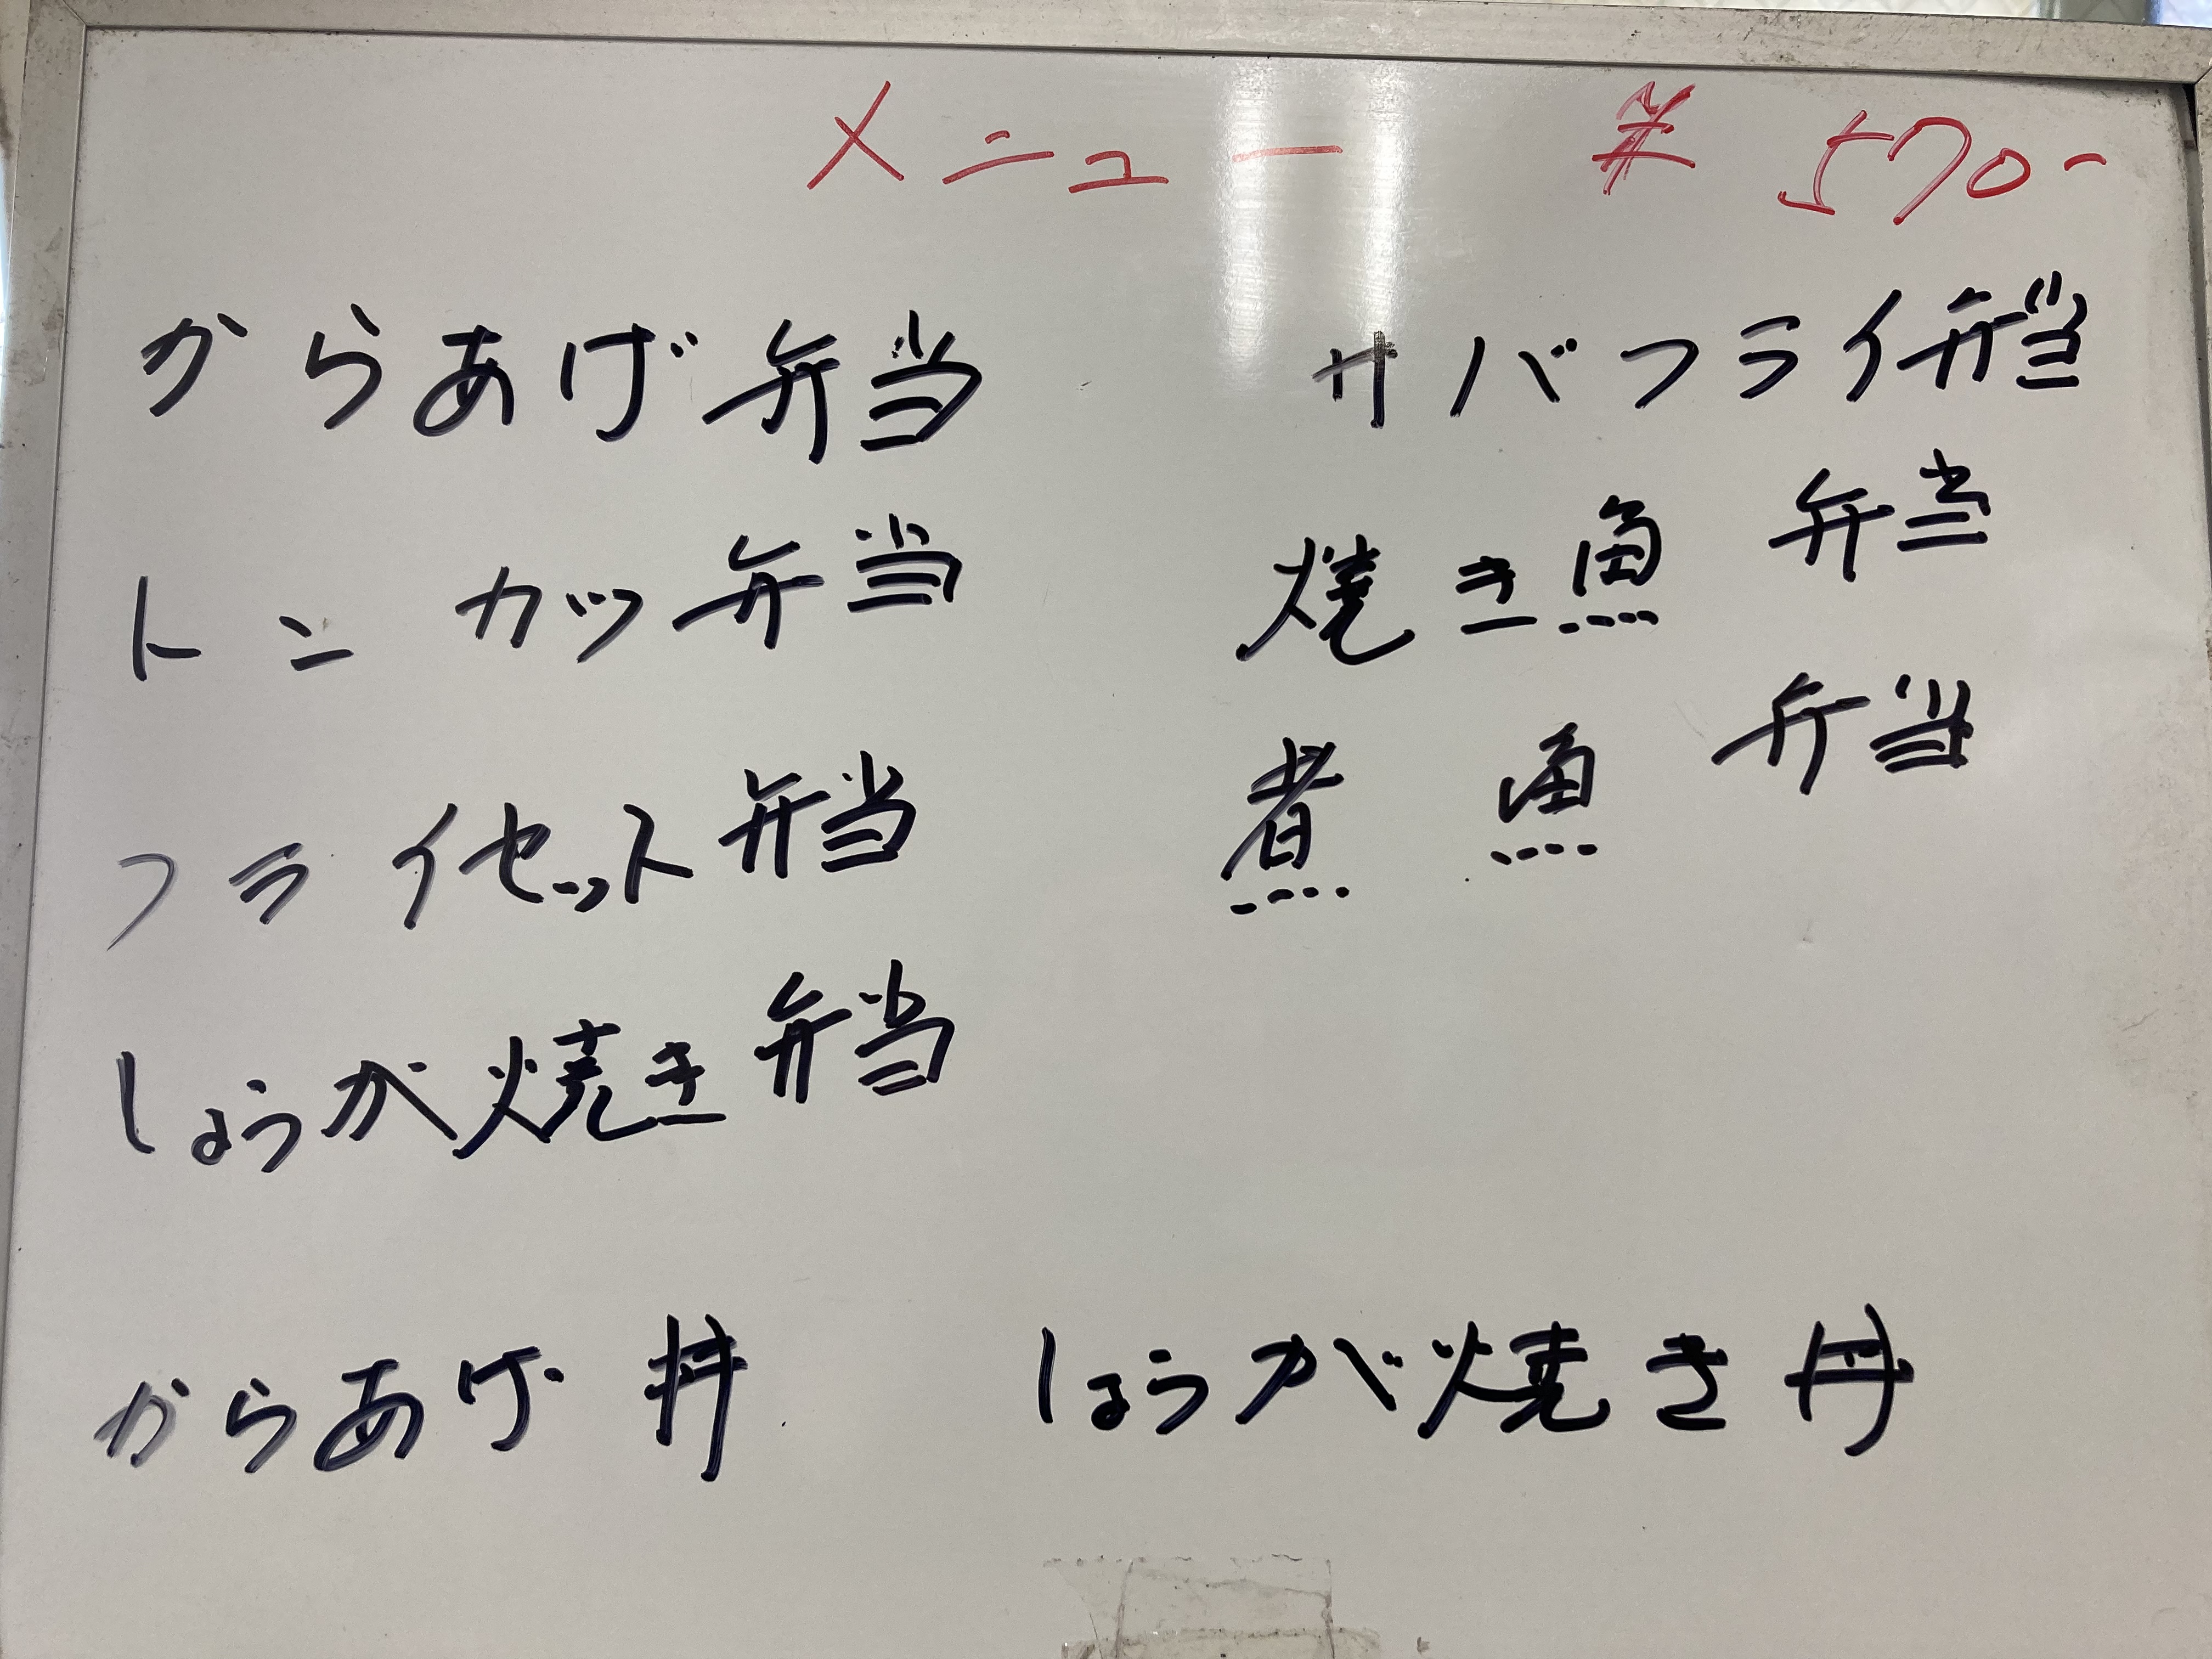 メニュー ¥570-
からあげ弁当
トンカツ弁当
フライセット弁当
しょうが焼き弁当
サバフライ弁当
焼き魚弁当
煮魚弁当
からあげ丼
しょうが焼き丼